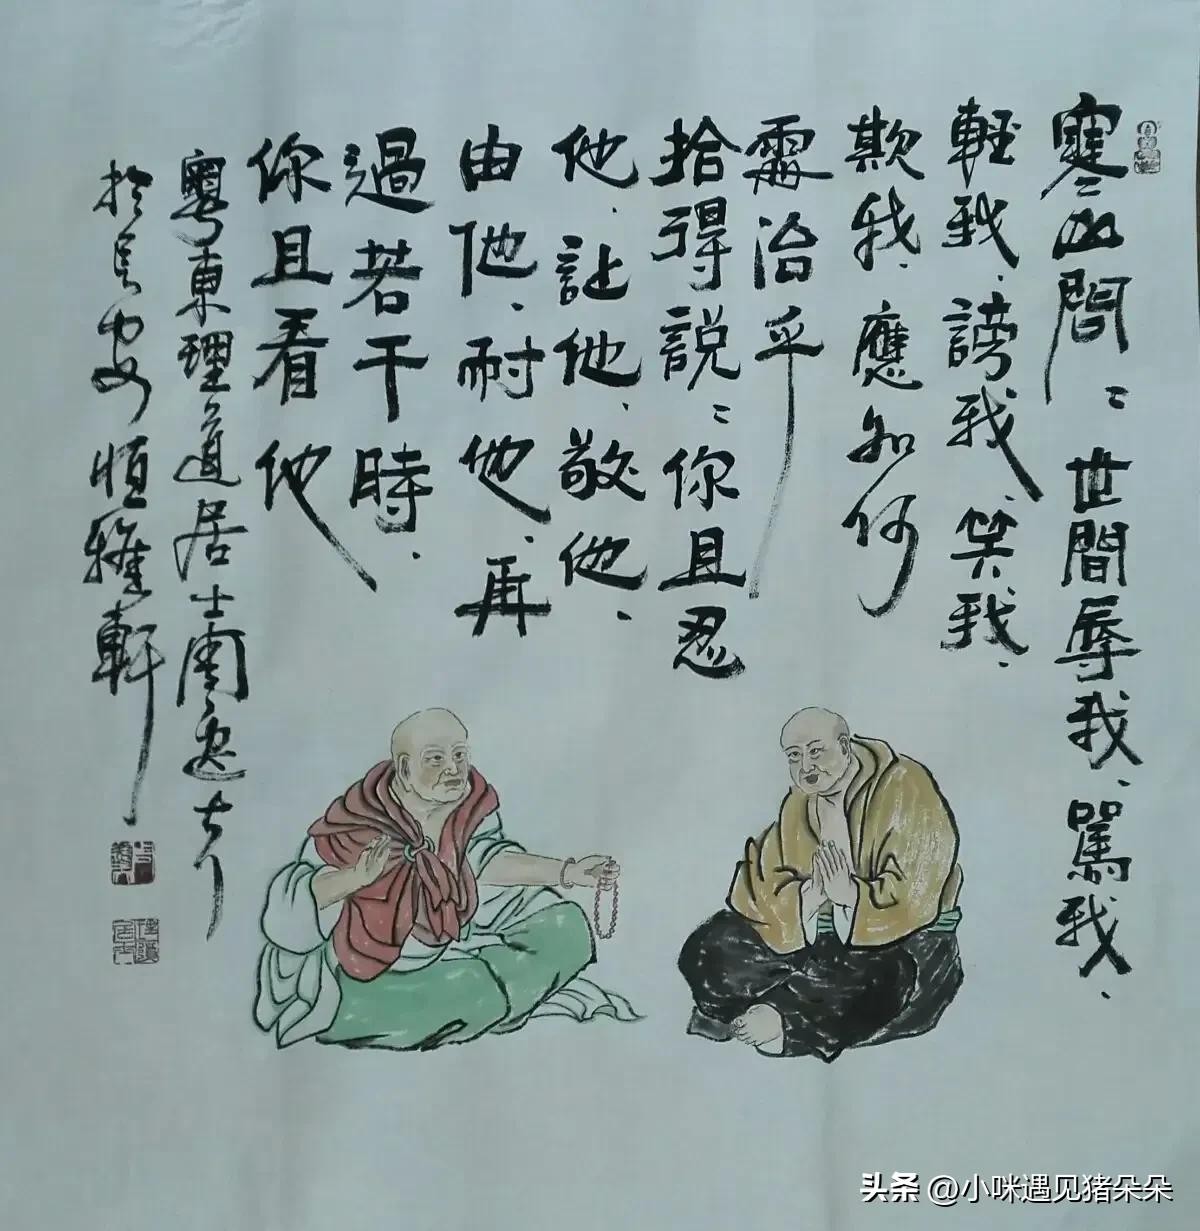 寒山問：世間辱我、罵我、
輕我、謗我、笑我、
欺我、應如何
處治乎
拾得説：你且忍
他、让他、敬他、
由他、耐他、再
過若干時、
你且看他
粤東理道居士
於長安恒雅軒
头条 @小咪遇见猪朵朵